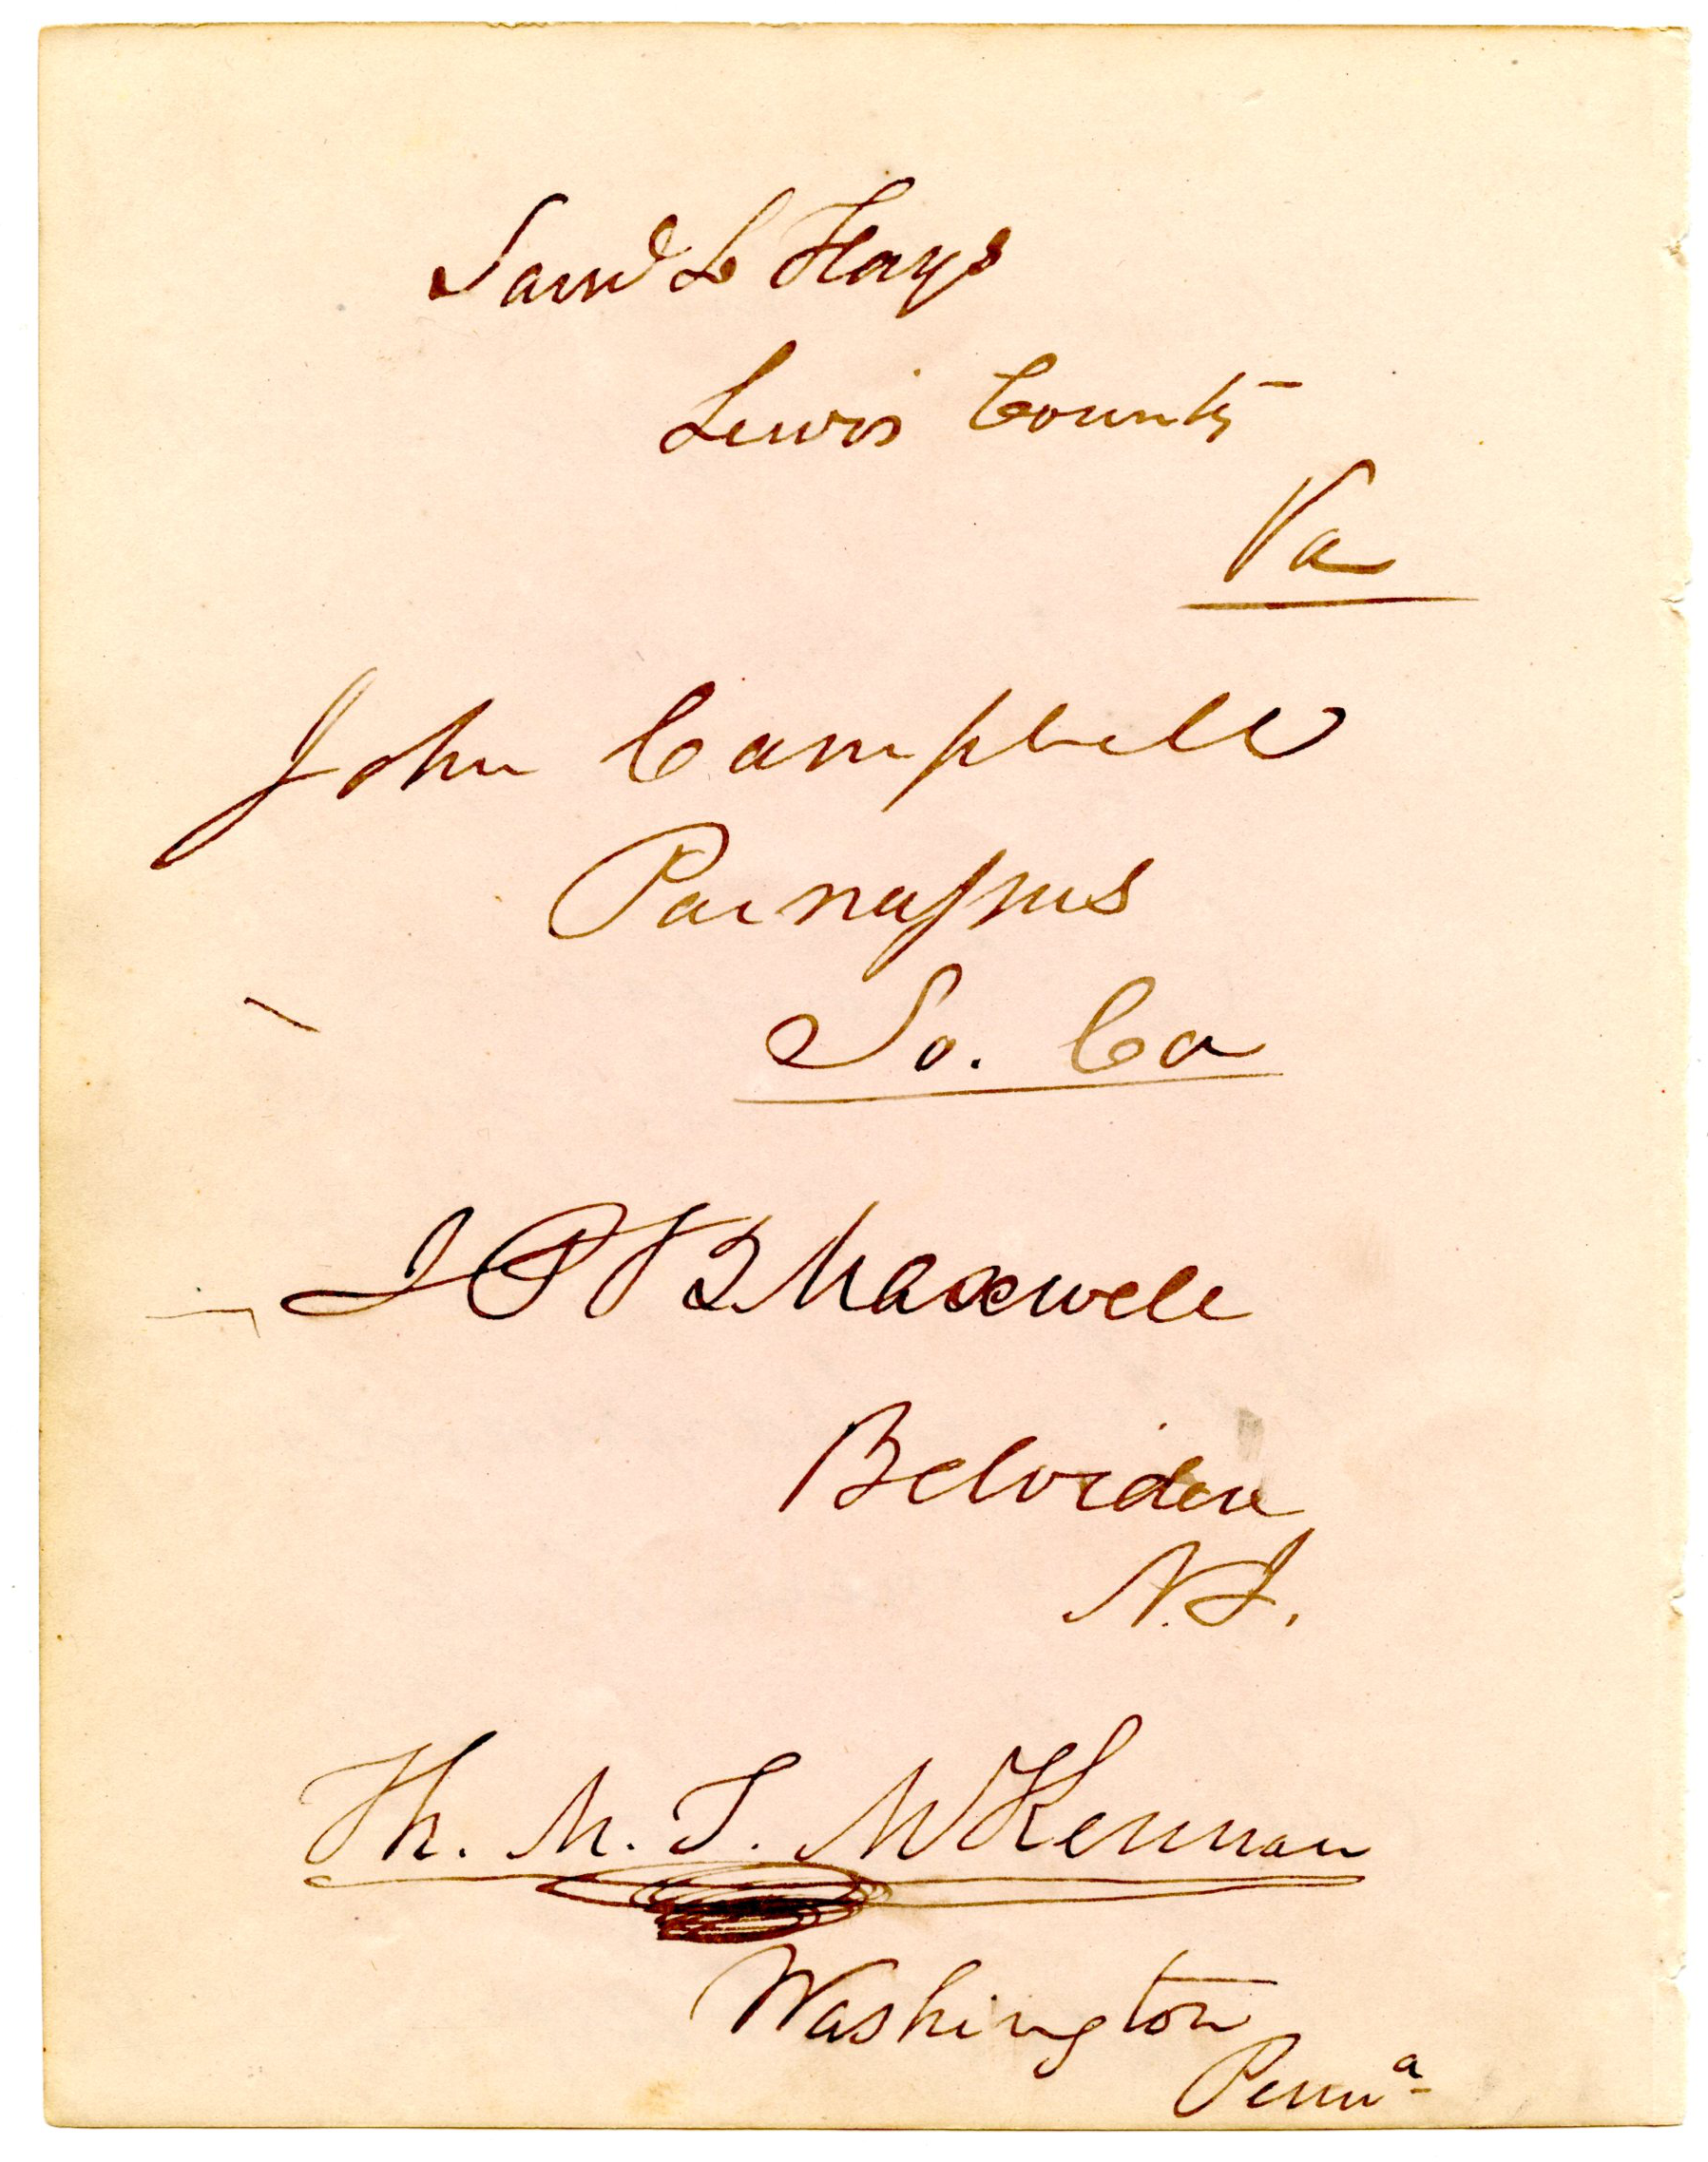 Saml L Hays
Lewis County
Va
John Campbell
Parnassus
So. Ca
J P B Maxwell
Belvidere
N.J.
Th. M. T. McKennan
Washington
Penna